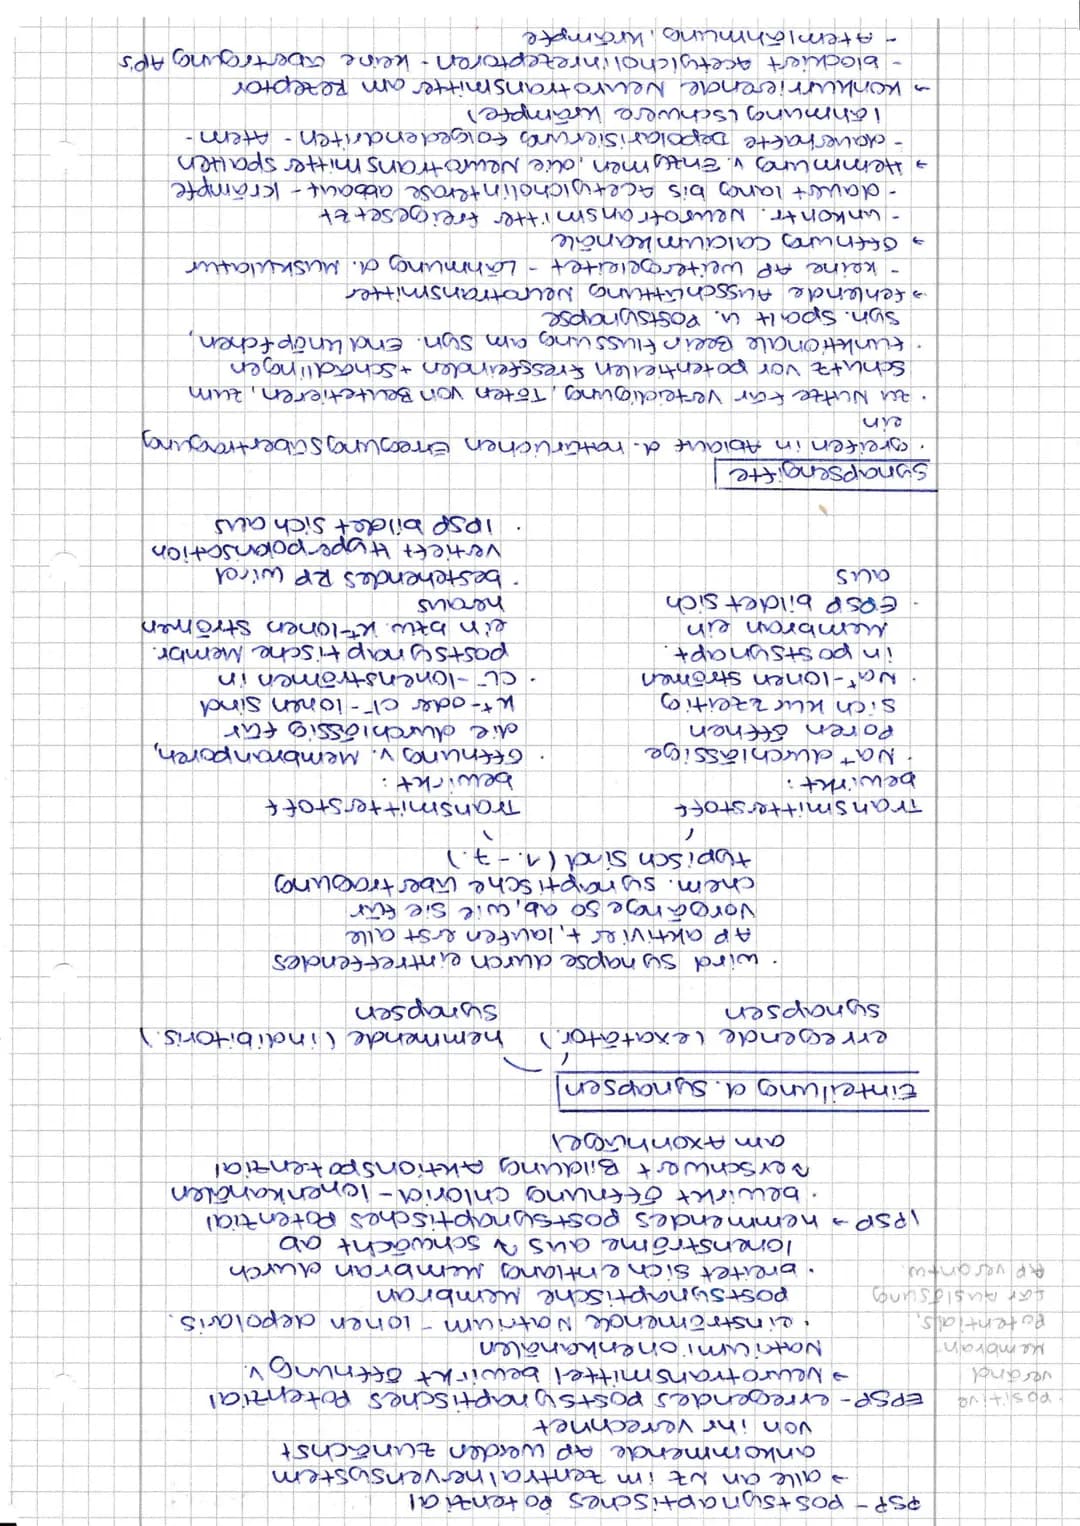 PSP - postsynaptisches Potenzial
→ alle an NZ im Zentralnervensystem
ankommende AP werden zunächst
von ihr verrechnet
EPSP - erregendes postsynaptisches Potenzial
→ Neurotransmittel bewirkt Öffnung v.
Natriumionenkanälen
· einströmende Natrium-Ionen depolaris.
postsynaptische Membran
· breitet sich entlang Membran durch
Ionenströme aus → schwächt ab
positive
Veränd
Membran-
potentials,
für Auslösung
AP verantw.
IPSP → hemmendes postsynaptisches Potenzial
· bewirkt Öffnung Chlorid-Ionenkanälen
erschwert Bildung Aktionspotenzial
am Axonhügel
Einteilung d. Synapsen
erregende (exatator.) synapsen
hemmende (indibitoris.) synapsen
· wird Synapse durch eintreffendes
AP aktiviert, laufen erst alle
Vorgänge so ab, wie sie für
chem. synaptische Übertragung
typisch sind (1.-7.)
Transmitterstoff
bewirkt:
· Na⁺ durchlässige
Poren öffnen
sich kurzzeitig
· Na⁺-Ionen strömen
in postsynapt.
Membran ein
· EPSP bildet sich
aus
Transmitterstoff
bewirkt:
· Öffnung v. Membranporen,
die durchlässig für
K⁺- oder Cl⁻-Ionen sind
· CL⁻-Ionenströmen in
postsynaptische Membr.
ein bzw. K⁺-Ionen strömen
heraus
· bestehendes RP wird
vertieft Hyperpolarisation
· IPSP bildet sich aus
Synapsengifte
· greifen in Ablauf d. natürlichen Erregungsübertragung
ein
· zu Nutze für Verteidigung, Töten von Beutetieren, zum
Schutz vor potentiellen Fressfeinden + Schädlingen
· funktionale Beeinflussung am syn. Endknöpfchen,
syn. Spalt u. Postsynapse
→ fehlende Ausschüttung Neurotransmitter
- keine AP weitergeleitet - Lähmung d. Muskulatur
→ Öffnung Calciumkanäle
- unkontr. Neurotransmitter freigesetzt
- dauert lang bis Acetylcholinterose abbaut - Krämpfe
→ Hemmung v. Enzymen, die Neurotransmitter spalten
- dauerhafte Depolarisierung folgedendriten - Atem-
lähmung (schwere Krämpfe)
→ konkurrierende Neurotransmitter am Rezeptor
- blockiert Acetylcholinrezeptoren - keine Übertragung AP's
- Atemlähmung, Krämpfe